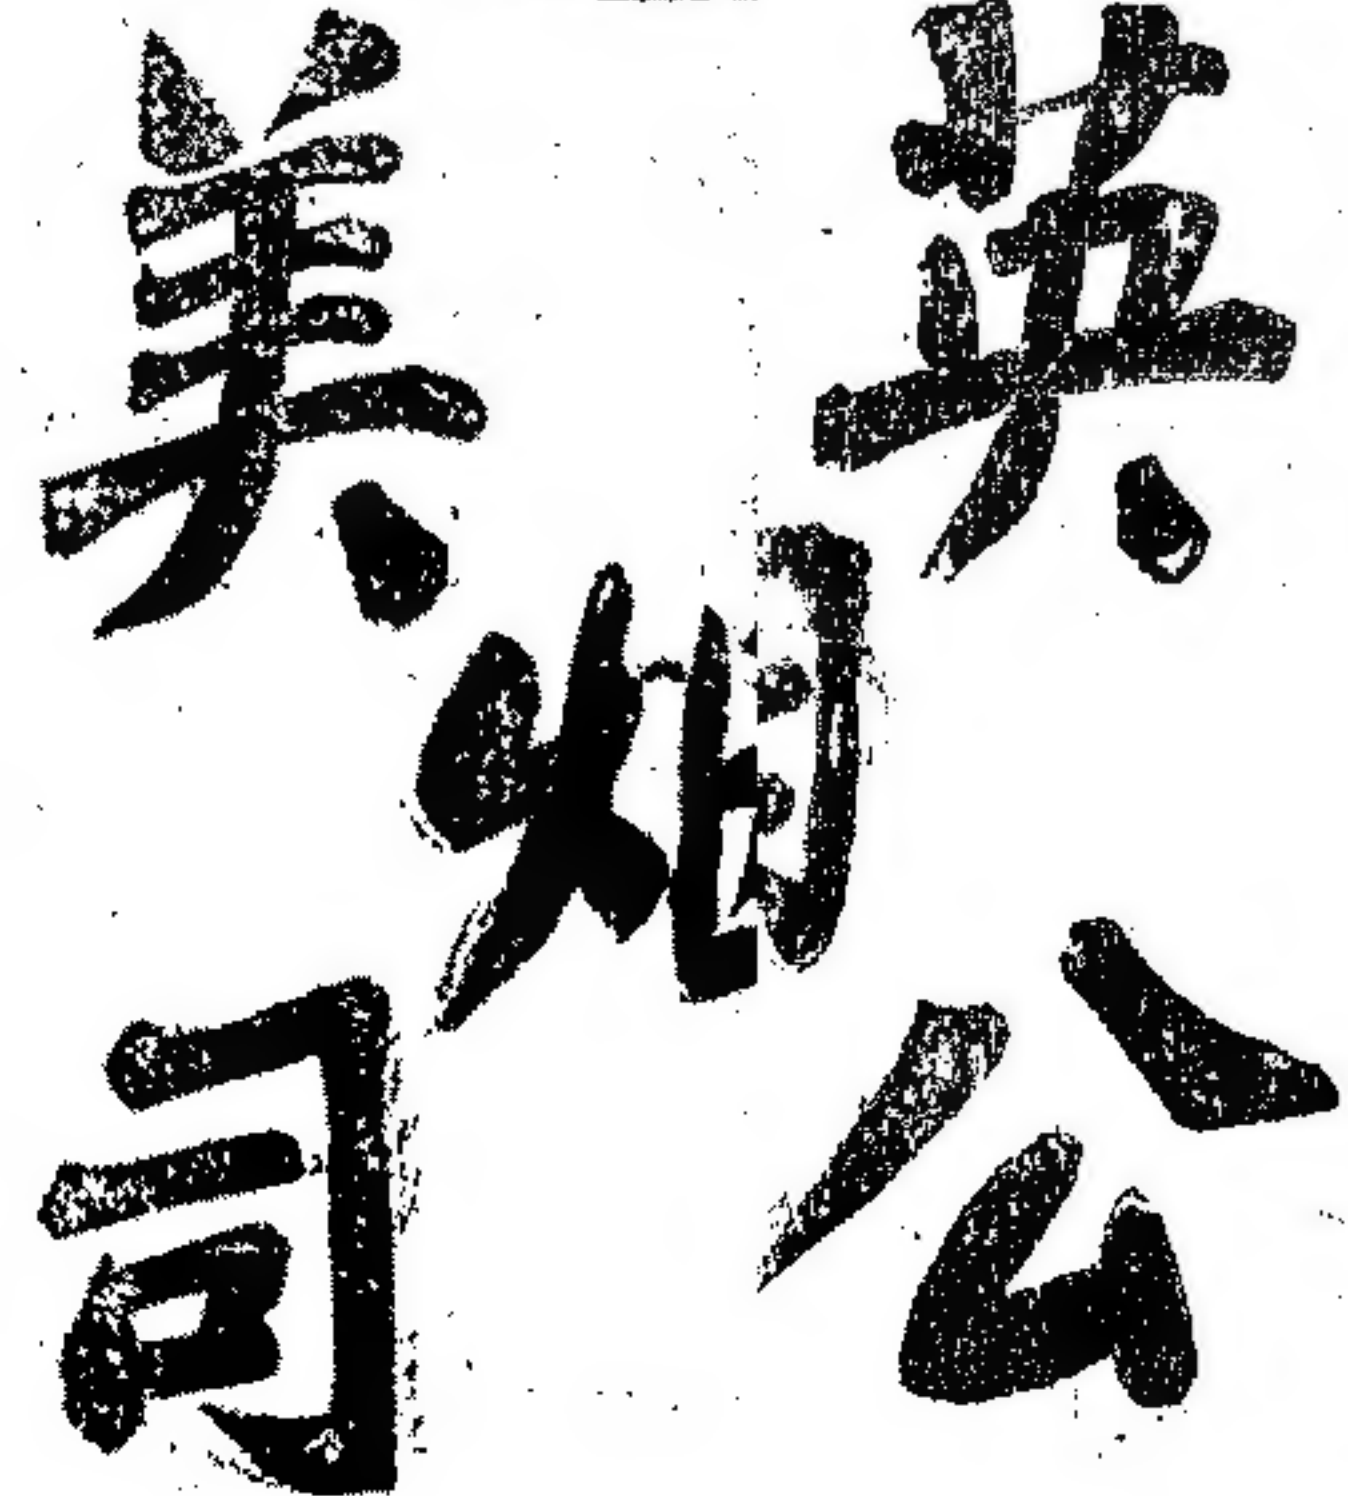 英美
烟
公司